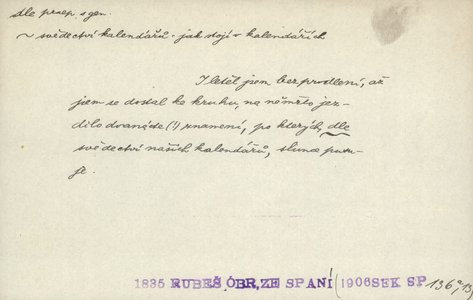 dle praep s gen.
~ svědectví kalendářů - jak stojí v kalendářích
I letěl jsem bez prodlení, až
jsem se dostal ke kruhu, na němžto jez-
dilo dvanácte (!) znamení, po kterých, dle
svědectví našich kalendářů, slunce putu-
je.
1835 RUBEŠ, ÓBR, ZE SPANÍ (1906 SEK SP
136,